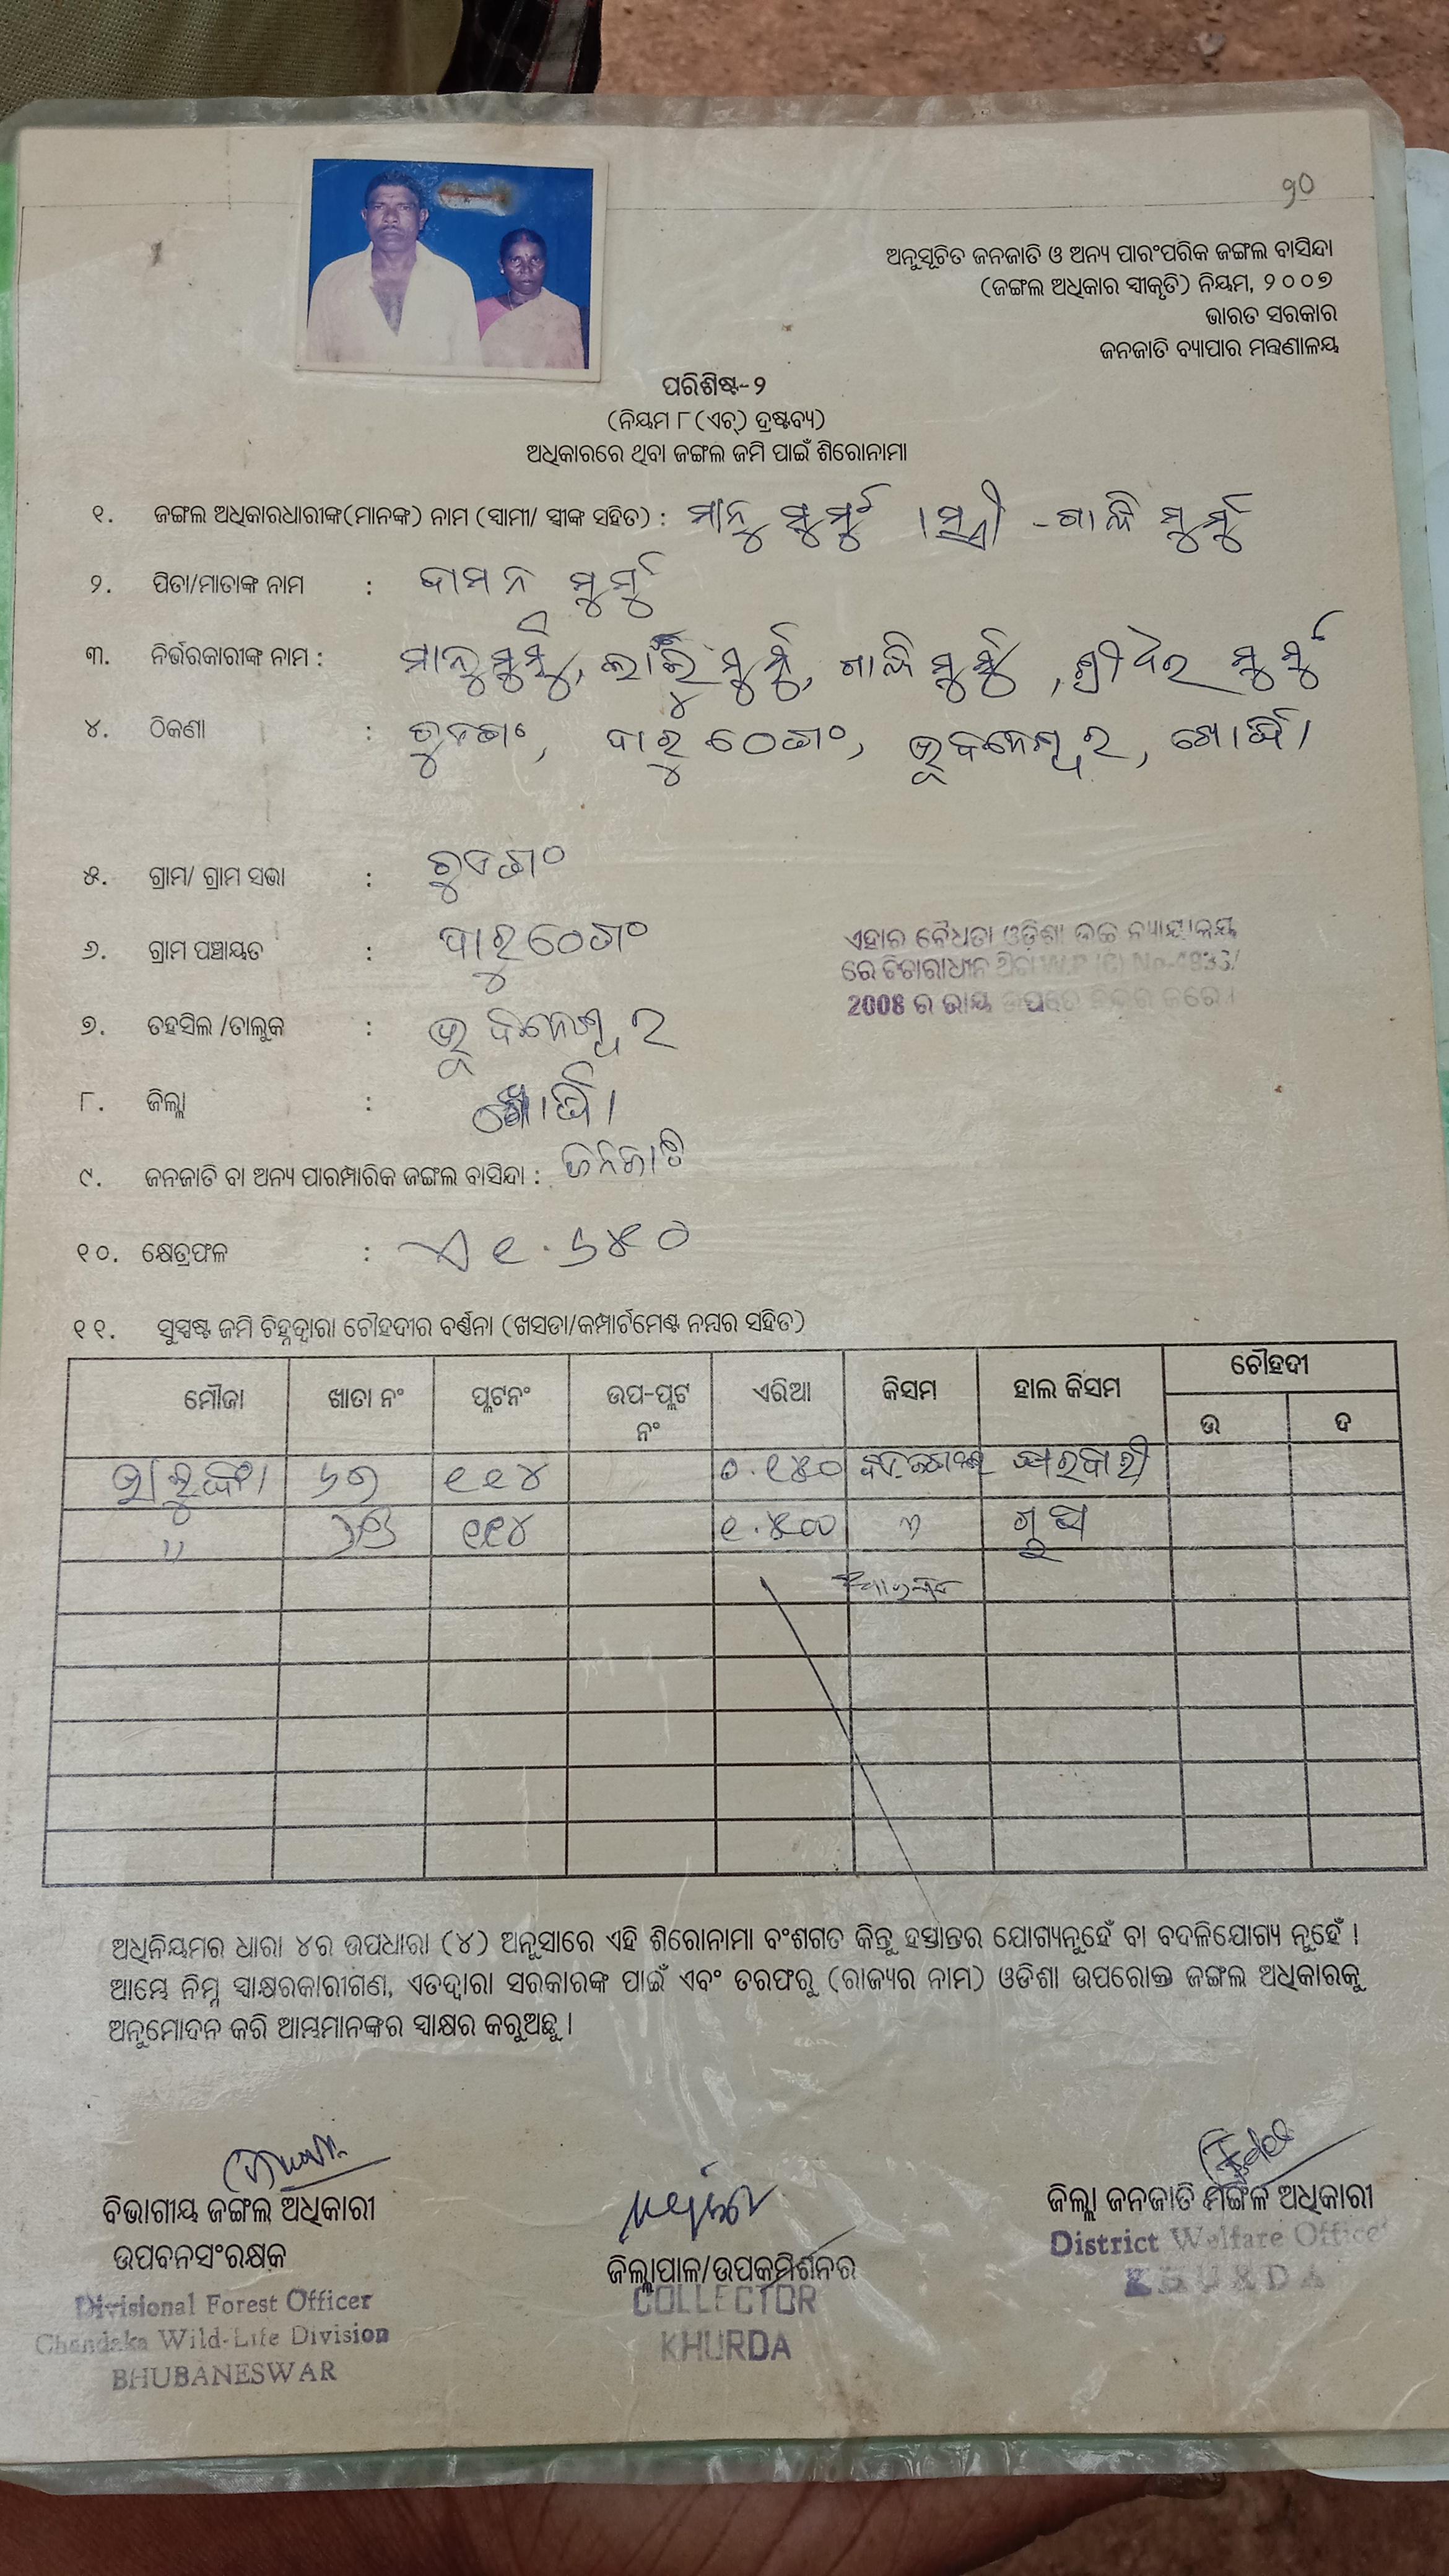 ୨୦
ଅନୁସୂଚିତ ଜନଜାତି ଓ ଅନ୍ୟ ପାରଂପରିକ ଜଙ୍ଗଲ ବାସିନ୍ଦା
(ଜଙ୍ଗଲ ଅଧିକାର ସ୍ୱୀକୃତି) ନିୟମ, ୨୦୦୭
ଭାରତ ସରକାର
ଜନଜାତି ବ୍ୟାପାର ମନ୍ତ୍ରଣାଳୟ
ପରିଶିଷ୍ଟ-୨
(ନିୟମ ୮(ଏଚ୍) ଦ୍ରଷ୍ଟବ୍ୟ)
ଅଧିକାରରେ ଥିବା ଜଙ୍ଗଲ ଜମି ପାଇଁ ଶିରୋନାମା
୧. ଜଙ୍ଗଲ ଅଧିକାରଧାରୀଙ୍କ(ମାନଙ୍କ) ନାମ (ସ୍ୱାମୀ/ ସ୍ତ୍ରୀଙ୍କ ସହିତ) : ମାନୁ ମୁର୍ମୁ । ସ୍ତ୍ରୀ - ମୁର୍ମୁ
୨. ପିତା/ମାତାଙ୍କ ନାମ : ଦାମନ ମୁର୍ମୁ
୩. ନିର୍ଭରକାରୀଙ୍କ ନାମ : ମାନୁ ମୁର୍ମୁ, ମୁର୍ମୁ, ମୁର୍ମୁ, ମୁର୍ମୁ
୪. ଠିକଣା : ଦାରୁଠେଙ୍ଗ, ଭୁବନେଶ୍ୱର, ଖୋର୍ଦ୍ଧା
୫. ଗ୍ରାମ/ ଗ୍ରାମ ସଭା :
୬. ଗ୍ରାମ ପଞ୍ଚାୟତ : ଦାରୁଠେଙ୍ଗ
ଏହାର ବୈଧତା ଓଡ଼ିଶା ଉଚ୍ଚ ନ୍ୟାୟାଳୟ
ରେ ବିଚାରାଧୀନ ଥିବା W.P (C) No-4933/
2008 ର ରାୟ ଉପରେ ନିର୍ଭର କରେ ।
୭. ତହସିଲ /ତାଲୁକ : ଭୁବନେଶ୍ୱର
୮. ଜିଲ୍ଲା : ଖୋର୍ଦ୍ଧା
୯. ଜନଜାତି ବା ଅନ୍ୟ ପାରମ୍ପାରିକ ଜଙ୍ଗଲ ବାସିନ୍ଦା : ଜନଜାତି
୧୦. କ୍ଷେତ୍ରଫଳ : ଏ ୧.୬୪୦
୧୧. ସୁସ୍ପଷ୍ଟ ଜମି ଚିହ୍ନଦ୍ୱାରା ଚୌହଦୀର ବର୍ଣ୍ଣନା (ଖସଡା/କମ୍ପାର୍ଟମେଣ୍ଟ ନମ୍ବର ସହିତ)
ମୌଜା ଖାତା ନଂ ପ୍ଲଟନଂ ଉପ-ପ୍ଲଟ ନଂ ଏରିଆ କିସମ ହାଲ କିସମ ଚୌହଦୀ
ଉ ଦ
୬୭ ୧୧୪ ୦.୧୪୦ ଘରବାରୀ
" ୧୧୪ ୧.୫୦୦
ଅଧିନିୟମର ଧାରା ୪ର ଉପଧାରା (୪) ଅନୁସାରେ ଏହି ଶିରୋନାମା ବଂଶଗତ କିନ୍ତୁ ହସ୍ତାନ୍ତର ଯୋଗ୍ୟନୁହେଁ ବା ବଦଳିଯୋଗ୍ୟ ନୁହେଁ ।
ଆମ୍ଭେ ନିମ୍ନ ସ୍ୱାକ୍ଷରକାରୀଗଣ, ଏତଦ୍ୱାରା ସରକାରଙ୍କ ପାଇଁ ଏବଂ ତରଫରୁ (ରାଜ୍ୟର ନାମ) ଓଡିଶା ଉପରୋକ୍ତ ଜଙ୍ଗଲ ଅଧିକାରକୁ
ଅନୁମୋଦନ କରି ଆମ୍ଭମାନଙ୍କର ସ୍ୱାକ୍ଷର କରୁଅଛୁ ।
ବିଭାଗୀୟ ଜଙ୍ଗଲ ଅଧିକାରୀ
ଉପବନସଂରକ୍ଷକ
Divisional Forest Officer
Chandaka Wild-Life Division
BHUBANESWAR
ଜିଲ୍ଲାପାଳ/ଉପକମିଶନର
COLLECTOR
KHURDA
ଜିଲ୍ଲା ଜନଜାତି ମଙ୍ଗଳ ଅଧିକାରୀ
District Welfare Officer
KHURDA